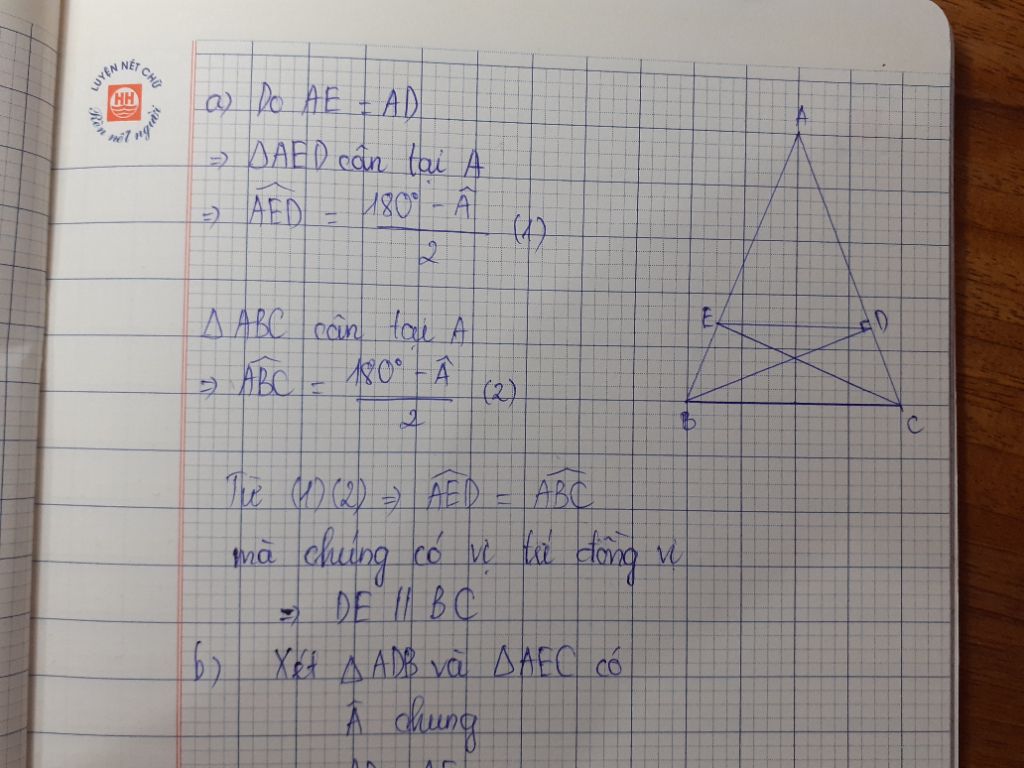 LUYỆN NẾT CHỮ
HH
Rèn nết người
a) Do AE = AD
=> ΔAED cân tại A
=> \widehat{AED} = \frac{180° - Â}{2} (1)
ΔABC cân tại A
=> \widehat{ABC} = \frac{180° - Â}{2} (2)
Từ (1)(2) => \widehat{AED} = \widehat{ABC}
mà chúng có vị trí đồng vị
=> DE // BC
b) Xét ΔADB và ΔAEC có
Â chung
A
E
D
B
C